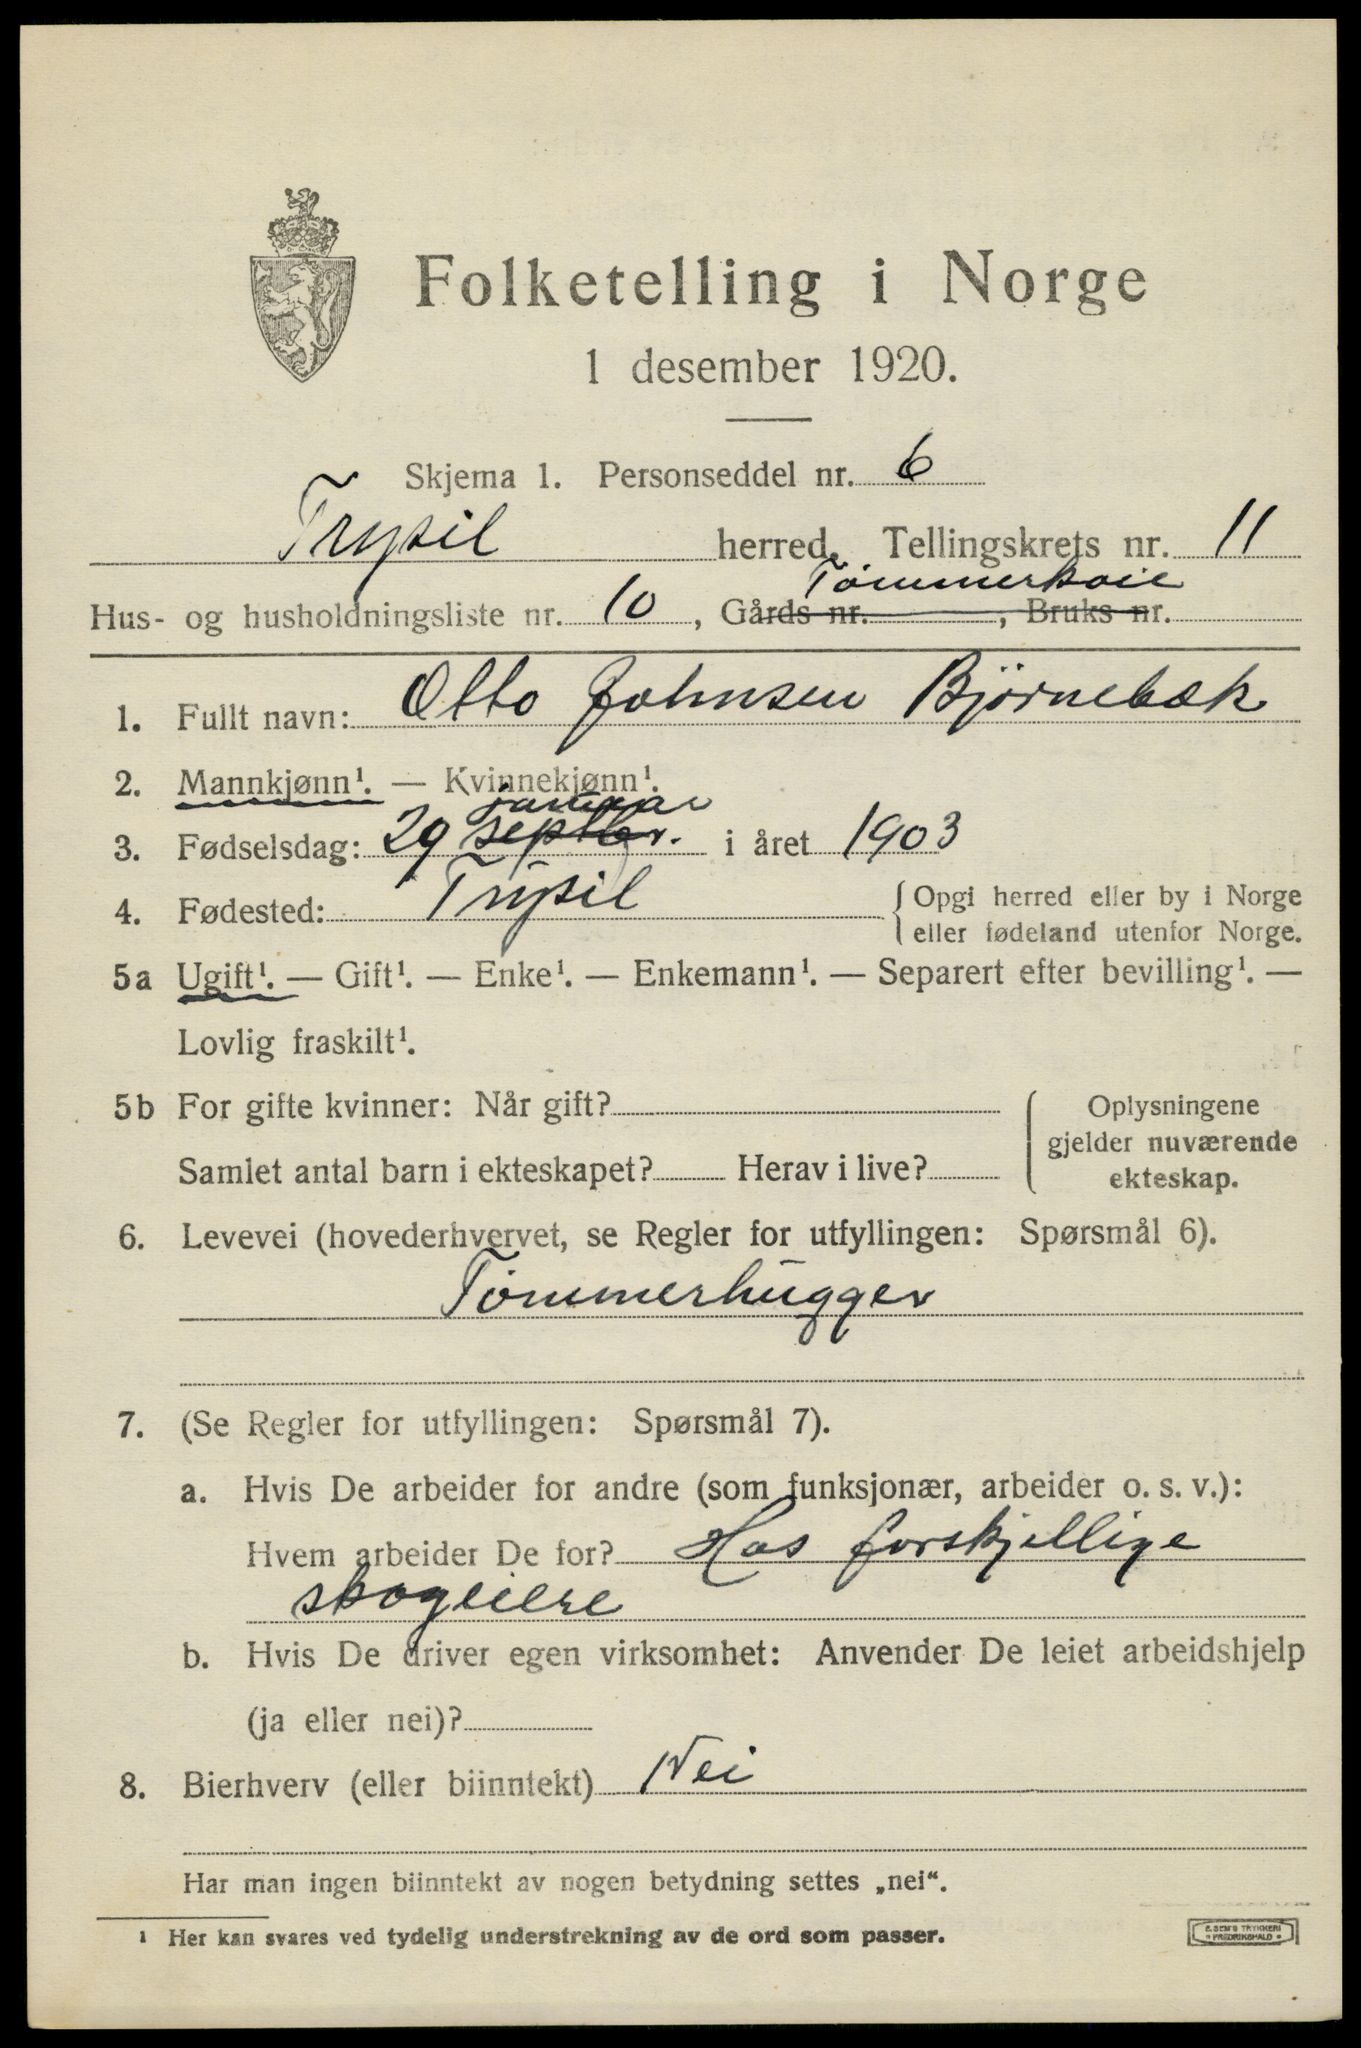 Folketelling i Norge
1 desember 1920.
Skjema 1. Personseddel nr. 6
Trysil herred. Tellingskrets nr. 11
Tömmerkoie
Hus- og husholdningsliste nr. 10, Gårds nr. , Bruks nr.
1. Fullt navn: Otto Johnsen Björnebæk
2. Mannkjønn¹. — Kvinnekjønn¹.
januar
3. Fødselsdag: 29 septbr. i året 1903
4. Fødested: Trysil { Opgi herred eller by i Norge
eller fødeland utenfor Norge.
5a Ugift¹. — Gift¹. — Enke¹. — Enkemann¹. — Separert efter bevilling¹. —
Lovlig fraskilt¹.
5b For gifte kvinner: Når gift? { Oplysningene
gjelder nuværende
Samlet antal barn i ekteskapet? Herav i live? ekteskap.
6. Levevei (hovederhvervet, se Regler for utfyllingen: Spørsmål 6).
Tömmerhugger
7. (Se Regler for utfyllingen: Spørsmål 7).
a. Hvis De arbeider for andre (som funksjonær, arbeider o. s. v.):
Hvem arbeider De for? Hos forskjellige
skogeiere
b. Hvis De driver egen virksomhet: Anvender De leiet arbeidshjelp
(ja eller nei)?
8. Bierhverv (eller biinntekt) Nei
Har man ingen biinntekt av nogen betydning settes „nei“.
¹ Her kan svares ved tydelig understrekning av de ord som passer.
E. SEM'S TRYKKERI
* FREDRIKSHALD *